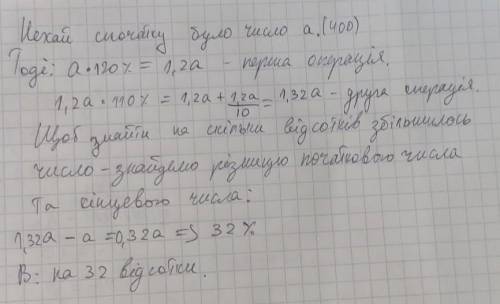 Нехай спочатку було число a.(400)
Тоді: a·120% = 1,2a - перша операція.
1,2a·110% = 1,2a + 1,2a/10 = 1,32a - друга операція.
Щоб знайти на скільки відсотків збільшилось
число - знайдемо різницю початкового числа
Та кінцевого числа:
1,32a - a = 0,32a => 32%
В: на 32 відсотки.